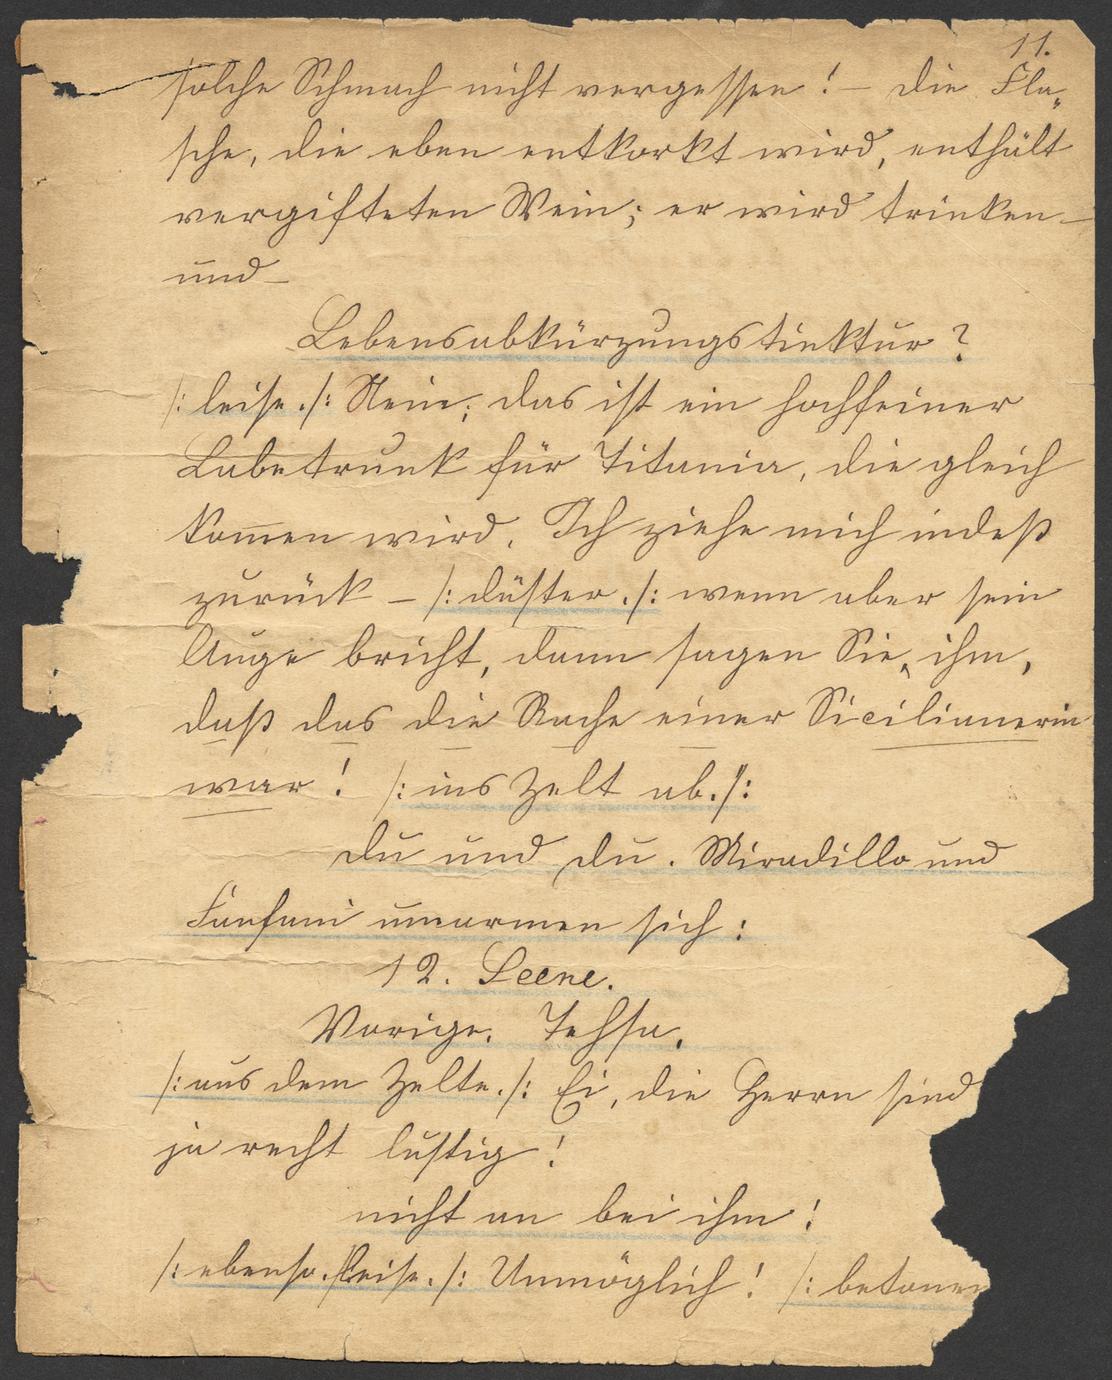 11.
solche Schmach nicht vergessen! – Die Fla„
sche, die eben entkorkt wird, enthält
vergifteten Wein; er wird trinken –
und –
Lebensabkürzungstinktur?
/: leise. /: Nein; das ist ein hochfeiner
Labetrunk für Titania, die gleich
kom̅en wird. Ich ziehe mich indeß
zurück – /: düster. /: wenn aber sein
Auge bricht, dann sagen Sie, ihm,
daß das die Rache einer Sicilianerin
war! /: ins Zelt ab. /:
du und du. Miradillo und
Fanfani umarmen sich:
12. Scene.
Vorige. Tessa.
/: aus dem Zelte. /: Ei, die Herrn sind
ja recht lustig!
nicht an bei ihm!
/: ebenso. leise. /: Unmöglich! /: betonen